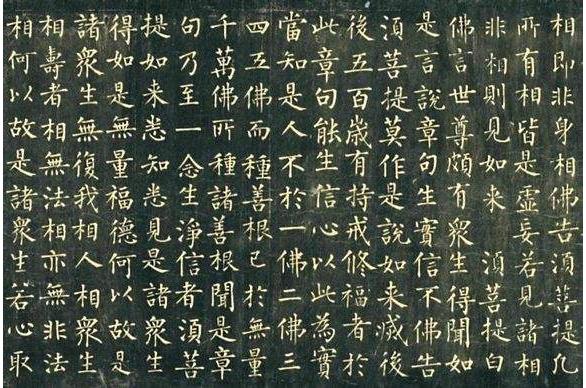 相即非身相佛告須菩提凡
所有相皆是虛妄若見諸相
非相則見如來 須菩提白
佛言世尊頗有衆生得聞如
是言說章句生實信不佛告
須菩提莫作是說如來滅後
後五百歲有持戒修福者於
此章句能生信心以此為實
當知是人不於一佛二佛三
四五佛而種善根已於無量
千萬佛所種諸善根聞是章
句乃至一念生淨信者須菩
提如來悉知悉見是諸衆生
得如是無量福德何以故是
諸衆生無復我相人相衆生
相壽者相無法相亦無非法
相何以故是諸衆生若心取